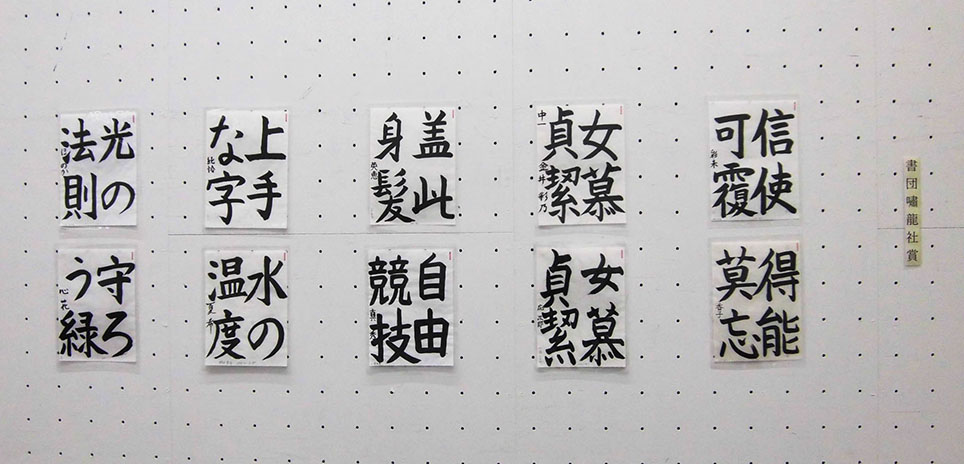 書団嘯龍社賞
信使
可覆
女慕
貞絜
中一
盖此
身髪
英恵
上手
な字
光の
法則
ほのか
得能
莫忘
女慕
貞絜
自由
競技
水の
温度
守ろ
う緑
心花